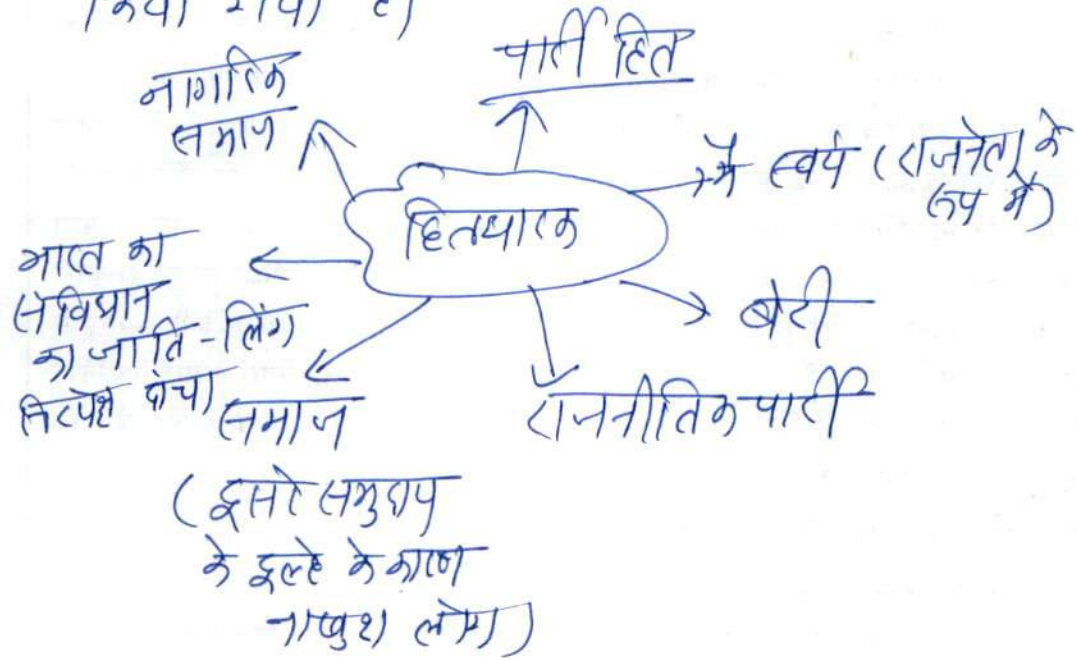 किया गया है।
नागरिक
समाज
पार्टी हित
मैं स्वयं (राजनेता के
रूप में)
हितधारक
भारत का
संविधान
का जाति-लिंग
निरपेक्ष ढांचा
बेटी
समाज
राजनीतिक पार्टी
(दूसरे समुदाय
के दूल्हे के कारण
नाखुश लोग)